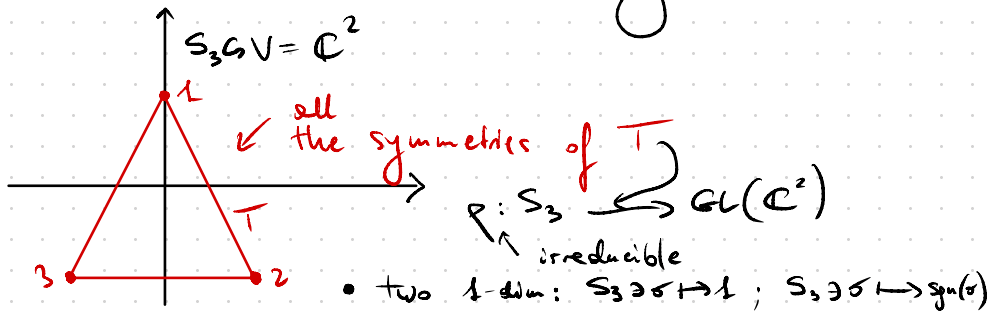 S₃ G V = ℂ²
1
all
the symmetries of T
T
ρ : S₃ → GL(ℂ²)
irreducible
3
2
• two 1-dim: S₃ ∋ σ ↦ 1 ; S₃ ∋ σ ↦ sgn(σ)